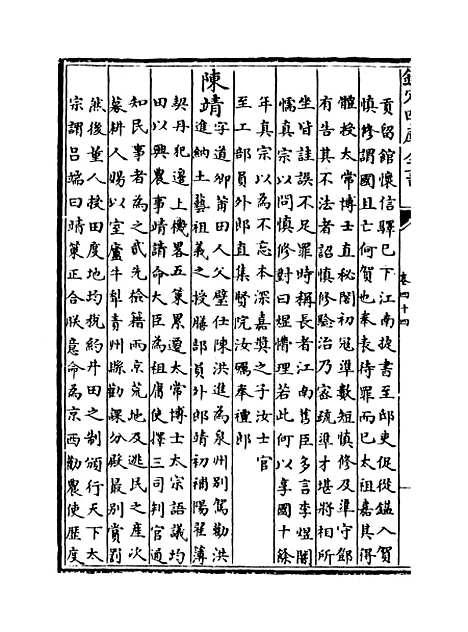 欽定四庫全書
卷四十四
貢留館懷信驛已下江南捷書至邸吏促從鎰入賀
慎修謂國且亡何賀也奉表待罪而已太祖嘉其得
體授太常博士直秘閣初冦準數短慎修及準守鄧
有告其不法者詔慎修驗治乃密疏準才堪將相所
坐皆詿誤不足罪時稱長者江南舊臣多言李煜闇
懦真宗以問慎修對曰煜懵理若此何以享國十餘
年真宗以為不忘本深嘉奬之子汝士官
至工部員外郎直集賢院汝礪奉禮郎
陳靖字道卿莆田人父璧仕陳洪進為泉州别駕勸洪
進納土藝祖義之授膳部員外郎靖初補陽翟薄
契丹犯邊上機畧五策累遷太常博士太宗語議均
田以興農事靖請大臣為租庸使擇三司判官通
知民事者為之貳先檢籍兩京荒地及逃民之產次
募耕人賜以室廬牛犁青州縣勸課分殿最别賞罰
然後量人授田度地均稅約井田之制頒行天下太
宗謂吕端曰靖策正合朕意命為京西勸農使歴度